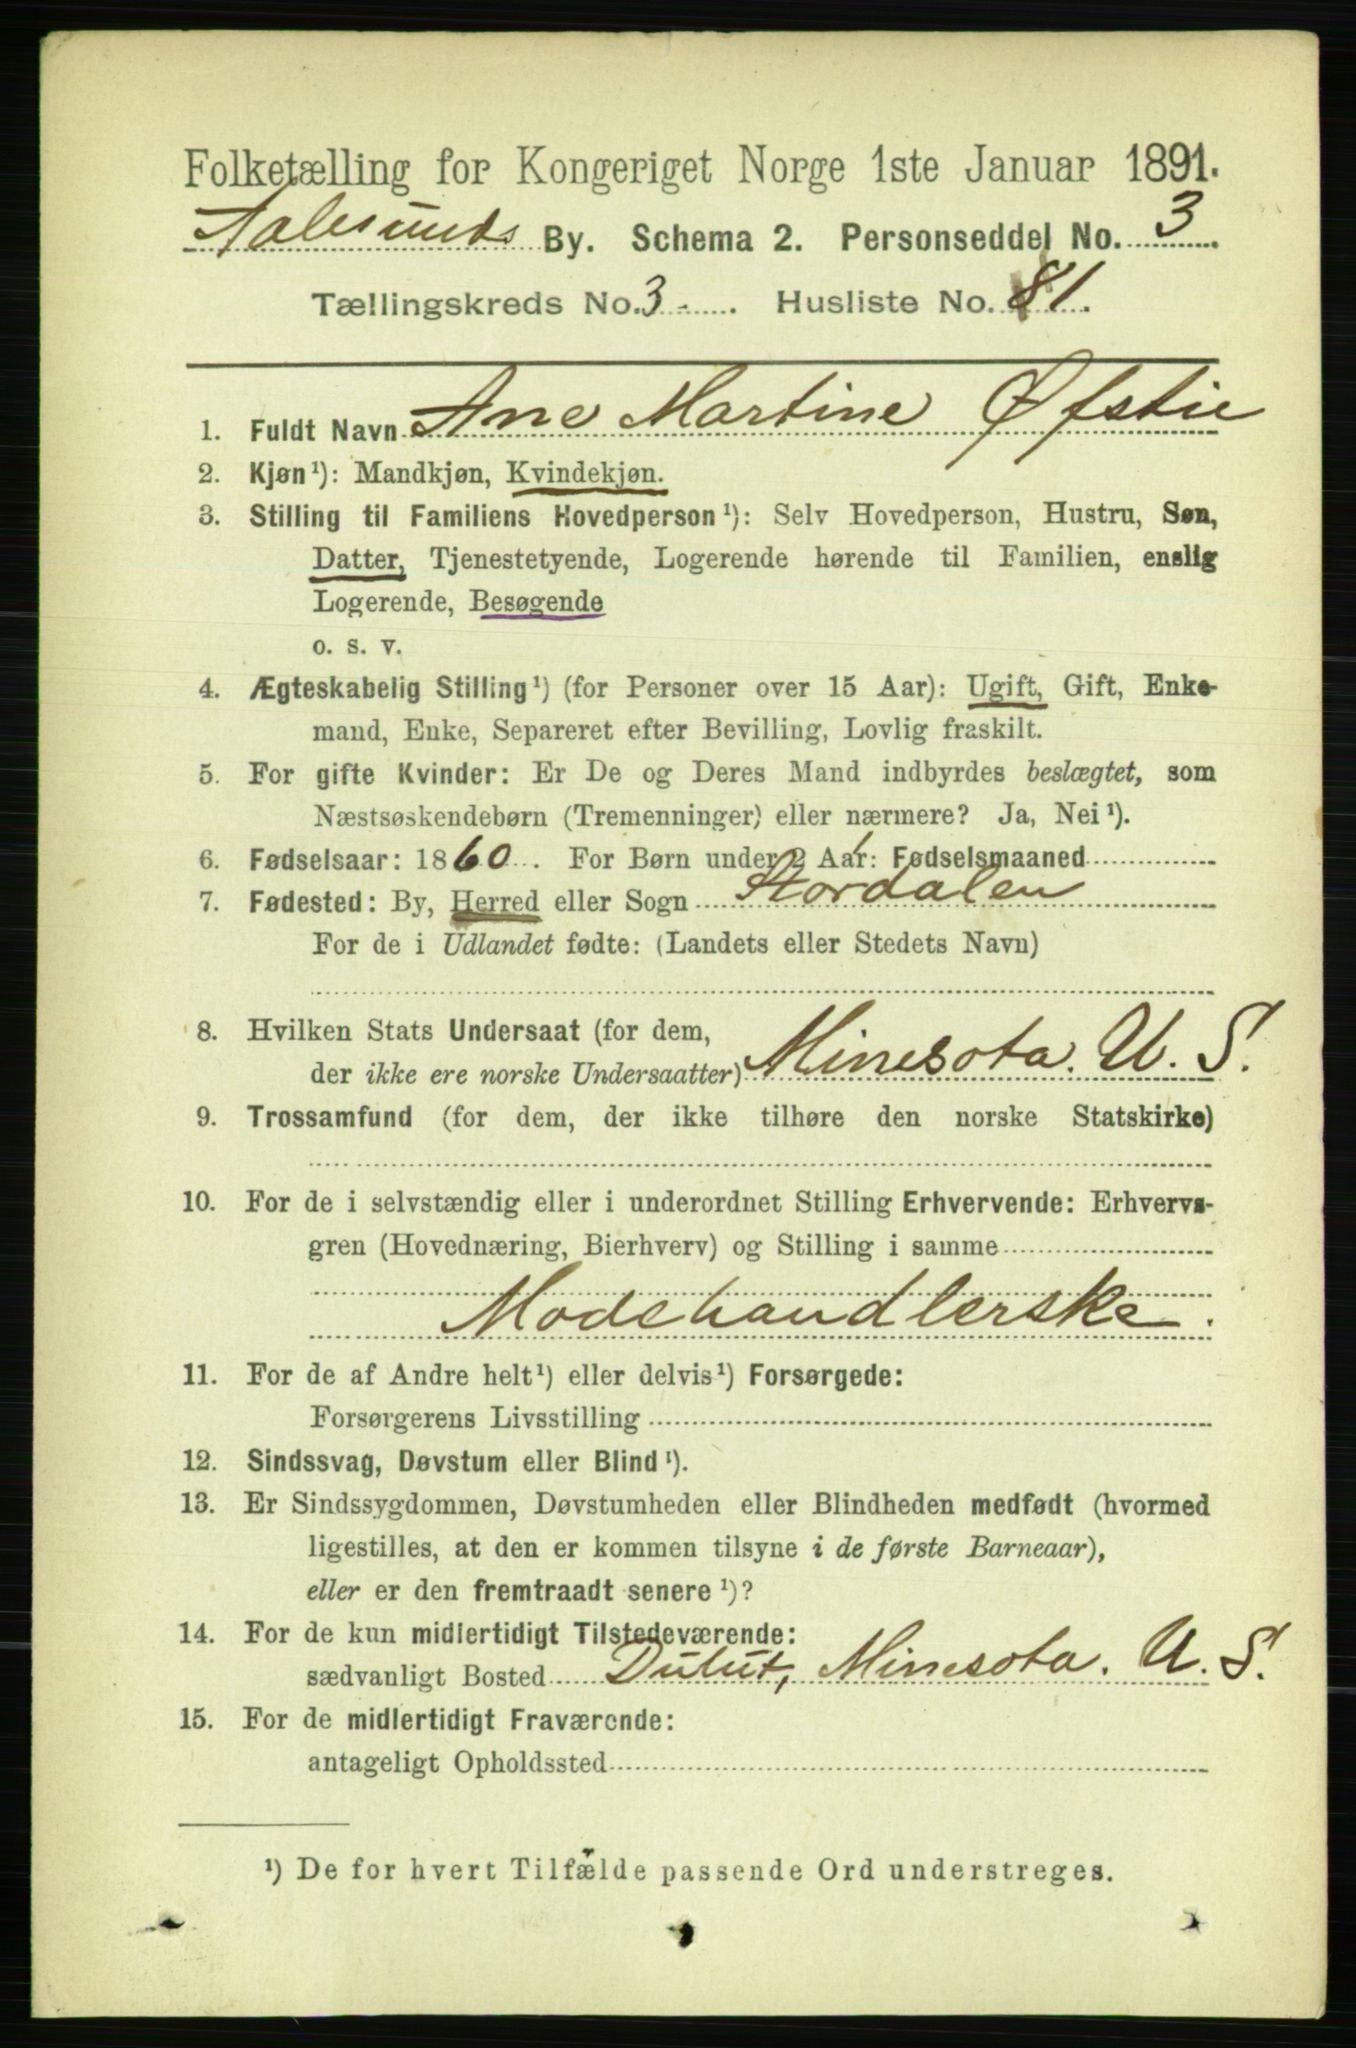 Folketælling for Kongeriget Norge 1ste Januar 1891.
Aalesunds By. Schema 2. Personseddel No. 3
Tællingskreds No. 3. Husliste No. 81.
1. Fuldt Navn Ane Martine Øfstie
2. Kjøn¹): Mandkjøn, Kvindekjøn.
3. Stilling til Familiens Hovedperson¹): Selv Hovedperson, Hustru, Søn,
Datter, Tjenestetyende, Logerende hørende til Familien, enslig
Logerende, Besøgende
o. s. v.
4. Ægteskabelig Stilling¹) (for Personer over 15 Aar): Ugift, Gift, Enke-
mand, Enke, Separeret efter Bevilling, Lovlig fraskilt.
5. For gifte Kvinder: Er De og Deres Mand indbyrdes beslægtet, som
Næstsøskendebørn (Tremenninger) eller nærmere? Ja, Nei¹).
6. Fødselsaar: 1860. For Børn under 2 Aar: Fødselsmaaned
7. Fødested: By, Herred eller Sogn Stordalen
For de i Udlandet fødte: (Landets eller Stedets Navn)
8. Hvilken Stats Undersaat (for dem,
der ikke ere norske Undersaatter) Minesota. U. S.
9. Trossamfund (for dem, der ikke tilhøre den norske Statskirke)
10. For de i selvstændig eller i underordnet Stilling Erhvervende: Erhvervs-
gren (Hovednæring, Bierhverv) og Stilling i samme
Modehandlerske.
11. For de af Andre helt¹) eller delvis¹) Forsørgede:
Forsørgerens Livsstilling
12. Sindssvag, Døvstum eller Blind¹).
13. Er Sindssygdommen, Døvstumheden eller Blindheden medfødt (hvormed
ligestilles, at den er kommen tilsyne i de første Barneaar),
eller er den fremtraadt senere¹)?
14. For de kun midlertidigt Tilstedeværende:
sædvanligt Bosted Dulut, Minesota. U. S.
15. For de midlertidigt Fraværende:
antageligt Opholdssted
¹) De for hvert Tilfælde passende Ord understreges.